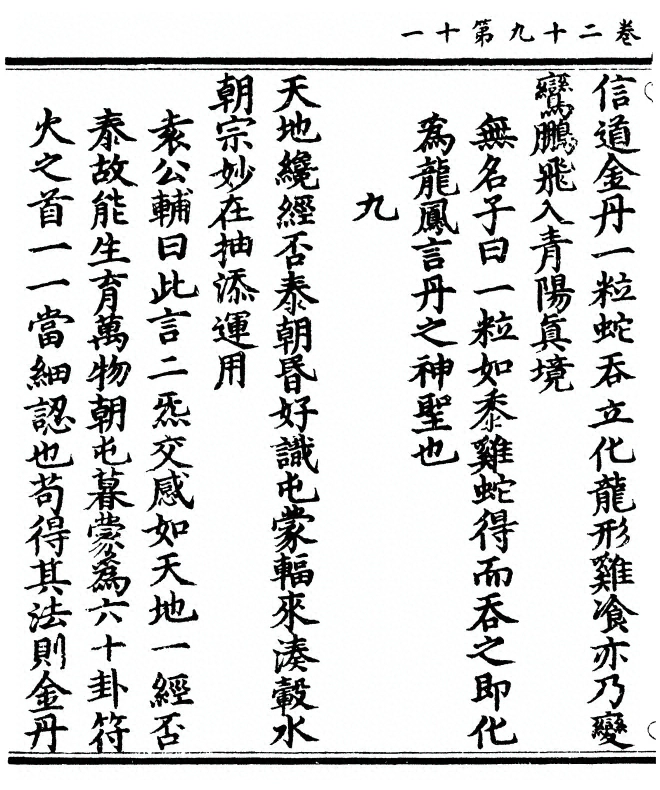 卷二十九第十一
信道金丹一粒蛇吞立化龍形雞飡亦乃變
鸞鵬飛入青陽眞境
無名子曰一粒如黍雞蛇得而吞之即化
為龍鳳言丹之神聖也
九
天地纔經否泰朝昏好識屯蒙輻來湊轂水
朝宗妙在抽添運用
袁公輔曰此言二炁交感如天地一經否
泰故能生育萬物朝屯暮蒙為六十卦符
火之首一一當細認也苟得其法則金丹